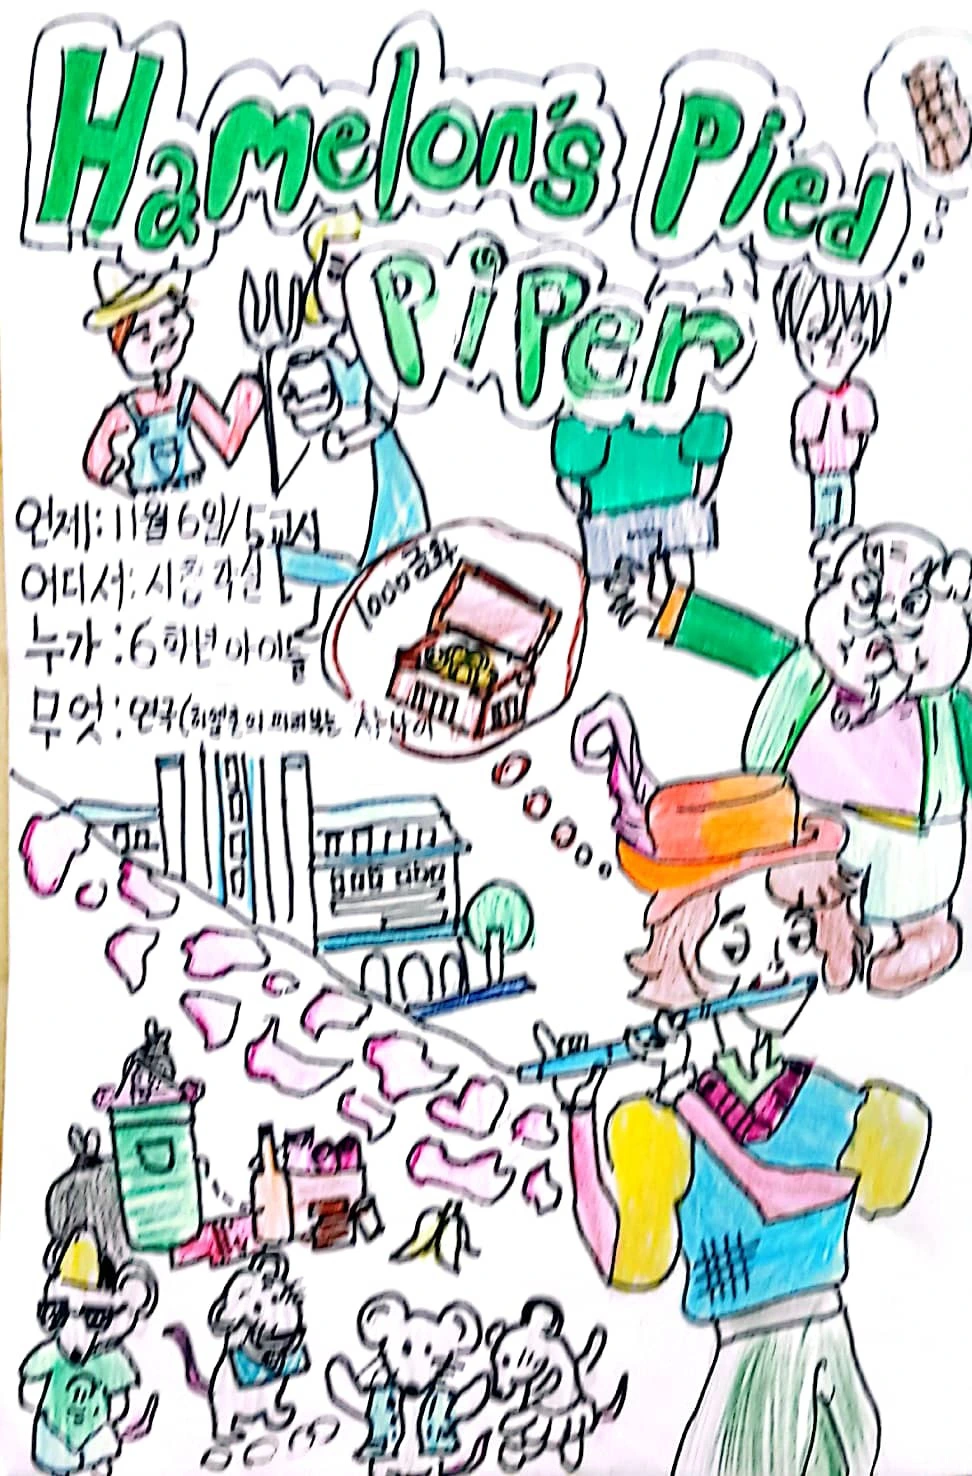 Hamelon's Pied
Piper
언제: 11월 6일/5교시
어디서: 시청각실
누가: 6학년 아이들
무엇: 연극(하멜른의 피리부는 사나이
1000금화